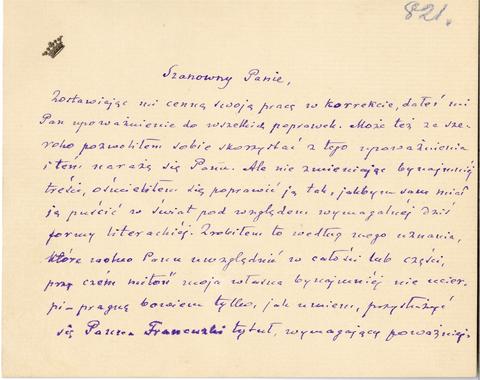 821.
Szanowny Panie,
Zostawiając mi cenną swoją pracę w korrekcie, dałeś mi
Pan upoważnienie do wszelkich poprawek. Może też za sze-
roko pozwoliłem sobie skorzystać z tego upoważnienia
i tém narażę się Panu. Ale nie zmieniając bynajmniéj
treści, ośmieliłem się poprawić ją tak, jakbym sam miał
ją puścić w świat pod względem wymagalnéj dziś
formy literackiéj. Zrobiłem to według mego uznania,
które wolno Panu uwzględnić w całości lub części,
przy czém miłość moja własna bynajmniéj nie ucier-
pi - pragnę bowiem tylko, jak umiem, przysłużyć
się Panu. Francuzki tytuł, wymagający poważniej-